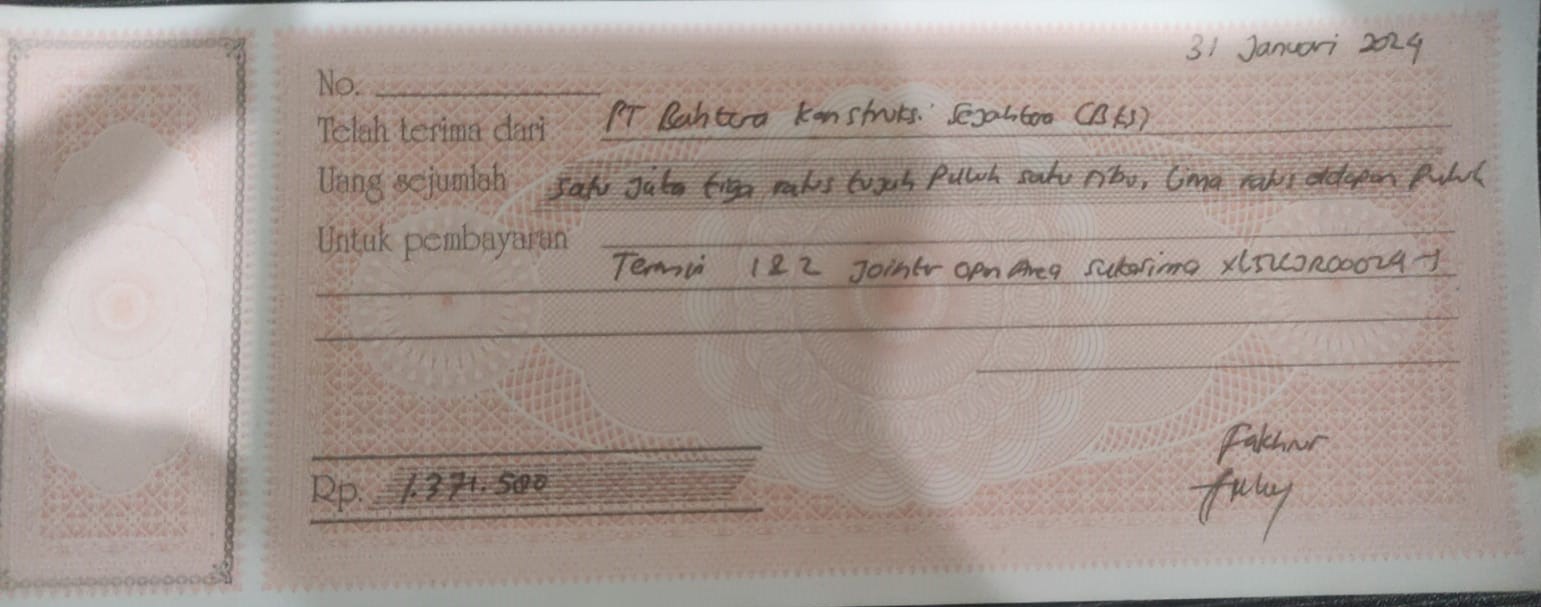 31 Januari 2024
No.
Telah terima dari PT Bahtera Konstruksi Sejahtera (BKS)
Uang sejumlah satu juta tiga ratus tujuh puluh satu ribu, lima ratus delapan puluh
Untuk pembayaran
Termin 1 & 2 Jointer opn Area Sukarima
Rp. 1.371.580
Fakhnur